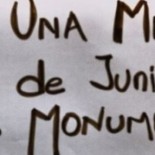 UNA
de JUNI
MONUM